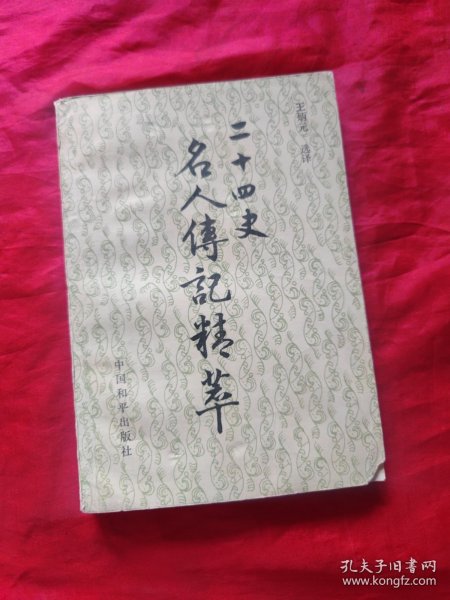 王炳元 选译
二十四史
名人傳記精萃
中国和平出版社
孔夫子旧书网
www.kongfz.com